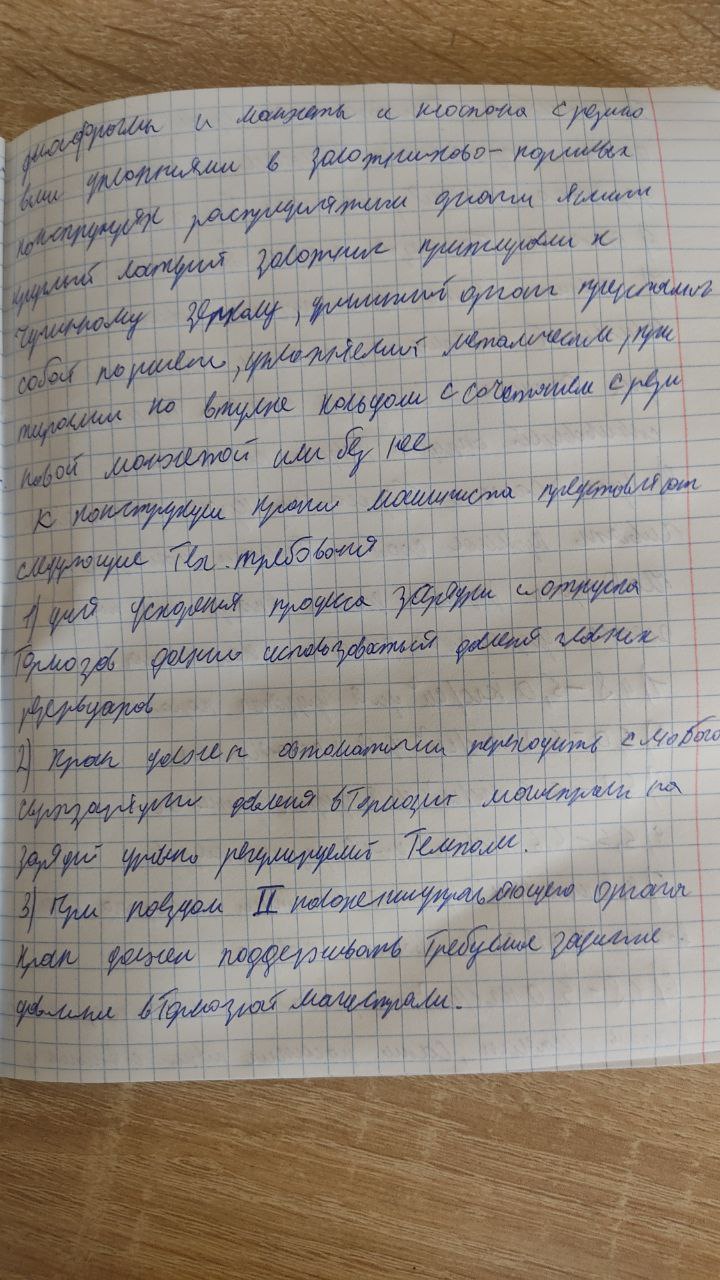 диафрагмы и манжеты и клапана с резино
выми уплотнениями в золотниково-поршневых
конструкциях распределяющи органом являлся
круглый латуный золотник притираемы к
чугунному зеркалу, уравнит орган представлял
собой поршень, уплотняемый металическим, при
тираемым по втулке кольцом с сочетанием с рези
новой манжетой или без нее
К конструкции крана машиниста предоставляют
следующие Тех. требования
1) для ускорения процеса зарядки и отпуска
Тормозов должно использоваться давления главных
резервуаров
2) Кран должен автоматичски переходить с любого
сверхзарядки давления в Тормозит магистрали на
зарядый уровень регулируемый Темпом.
3) При поездом II положении управляющего органа
Кран должен поддерживать Требуемое зарядное
давление в Тормозной магистрали.